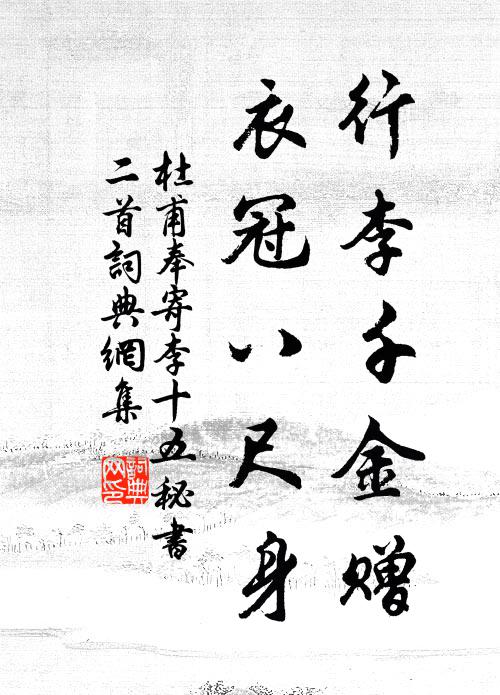 行李千金贈
衣冠八尺身
杜甫奉寄李十五秘書
二首詞典網集
詞典網印